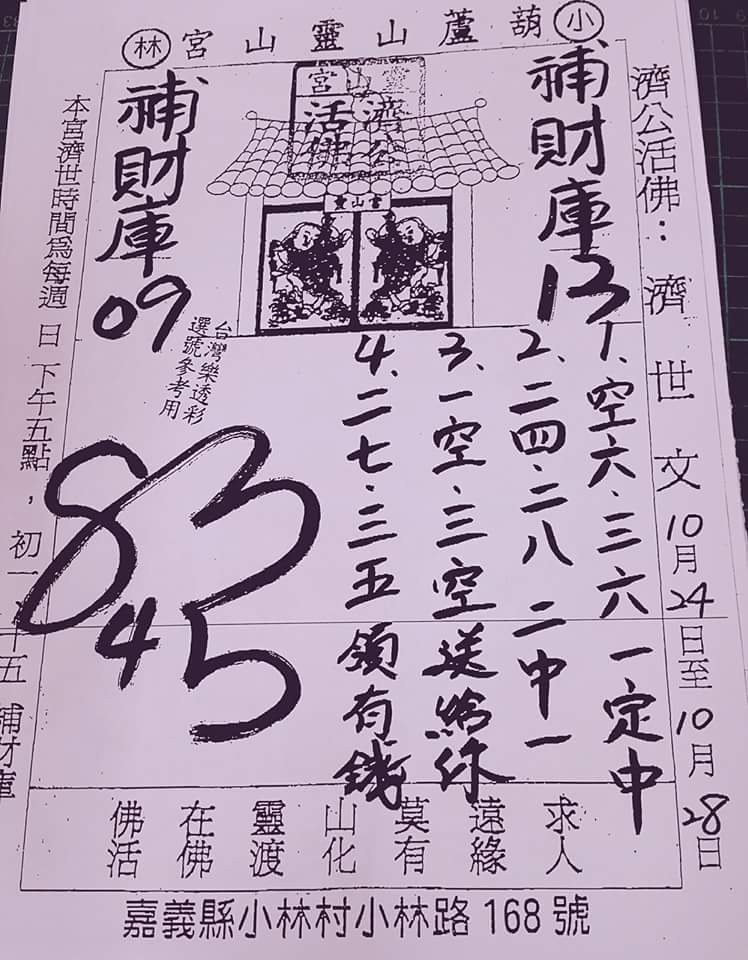 小葫蘆山靈山宮林
濟公活佛：濟世文10月24日至10月28日
補財庫13
補財庫09
靈山宮
濟公活佛
靈山宮
1、空六．三六一定中
2、二四．二八二中一
3、一空．三空送給你
4、二七．三五領有錢
台灣樂透彩
選號參考用
83
45
本宮濟世時間為每週日下午五點，初一十五補財庫
佛在靈山莫遠求
活佛渡化有緣人
嘉義縣小林村小林路168號